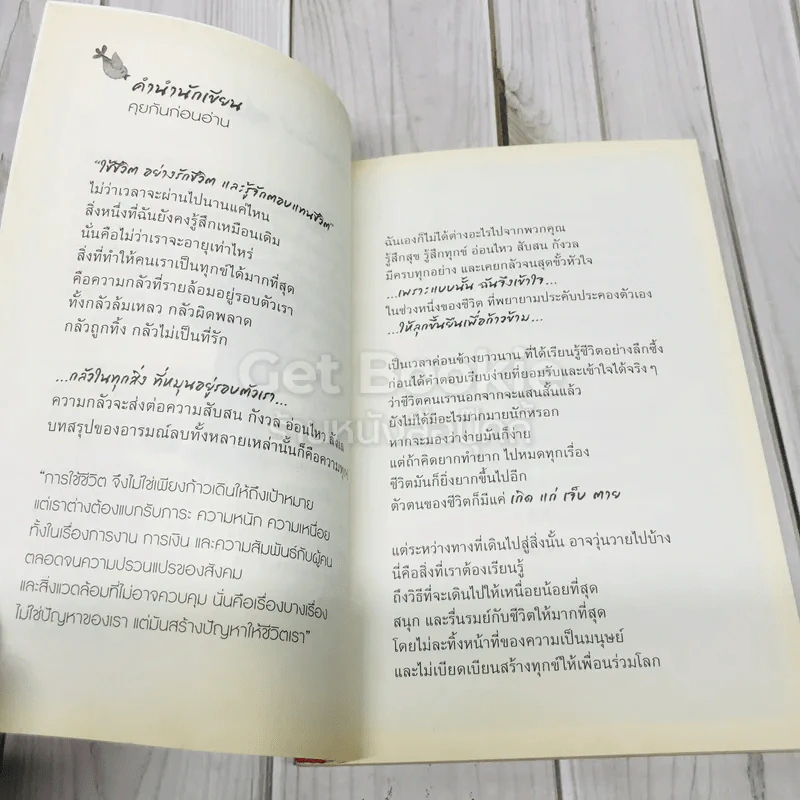 คำนำนักเขียน
คุยกันก่อนอ่าน
"ใช้ชีวิต อย่างรักชีวิต และรู้จักตอบแทนชีวิต"
ไม่ว่าเวลาจะผ่านไปนานแค่ไหน
สิ่งหนึ่งที่ฉันยังคงรู้สึกเหมือนเดิม
นั่นคือไม่ว่าเราจะอายุเท่าไหร่
สิ่งที่ทำให้คนเราเป็นทุกข์ได้มากที่สุด
คือความกลัวที่รายล้อมอยู่รอบตัวเรา
ทั้งกลัวล้มเหลว กลัวผิดพลาด
กลัวถูกทิ้ง กลัวไม่เป็นที่รัก
...กลัวในทุกสิ่ง ที่หมุนอยู่รอบตัวเรา...
ความกลัวจะส่งต่อความสับสน กังวล อ่อนไหว
บทสรุปของอารมณ์ลบทั้งหลายเหล่านั้นก็คือ
"การใช้ชีวิต จึงไม่ใช่เพียงก้าวเดินให้ถึงเป้าหมาย
แต่เราต่างต้องแบกรับภาระ ความหนัก ความเหนื่อย
ทั้งในเรื่องการงาน การเงิน และความสัมพันธ์กับผู้คน
ตลอดจนความปรวนแปรของสังคม
และสิ่งแวดล้อมที่ไม่อาจควบคุม นั่นคือเรื่องบางเรื่อง
ไม่ใช่ปัญหาของเรา แต่มันสร้างปัญหาให้ชีวิตเรา"
ฉันเองก็ไม่ได้ต่างอะไรไปจากพวกคุณ
รู้สึกสุข รู้สึกทุกข์ อ่อนไหว สับสน กังวล
มีครบทุกอย่าง และเคยกลัวจนสุดขั้วหัวใจ
...เพราะแบบนั้น ฉันจึงเข้าใจ...
ในช่วงหนึ่งของชีวิต ที่พยายามประคับประคองตัวเอง
...ให้ลุกขึ้นยืนเพื่อก้าวข้าม...
เป็นเวลาค่อนข้างยาวนาน ที่ได้เรียนรู้ชีวิตอย่างลึกซึ้ง
ก่อนได้คำตอบเรียบง่ายที่ยอมรับและเข้าใจได้จริง ๆ
ว่าชีวิตคนเรานอกจากจะแสนสั้นแล้ว
ยังไม่ได้มีอะไรมากมายนักหรอก
หากจะมองว่าง่ายมันก็ง่าย
แต่ถ้าคิดยากทำยาก ไปหมดทุกเรื่อง
ชีวิตมันก็ยิ่งยากขึ้นไปอีก
ตัวตนของชีวิตก็มีแค่ เกิด แก่ เจ็บ ตาย
แต่ระหว่างทางที่เดินไปสู่สิ่งนั้น อาจวุ่นวายไปบ้าง
นี่คือสิ่งที่เราต้องเรียนรู้
ถึงวิธีที่จะเดินไปให้เหนื่อยน้อยที่สุด
สนุก และรื่นรมย์กับชีวิตให้มากที่สุด
โดยไม่ละทิ้งหน้าที่ของความเป็นมนุษย์
และไม่เบียดเบียนสร้างทุกข์ให้เพื่อนร่วมโลก
Get Bookie